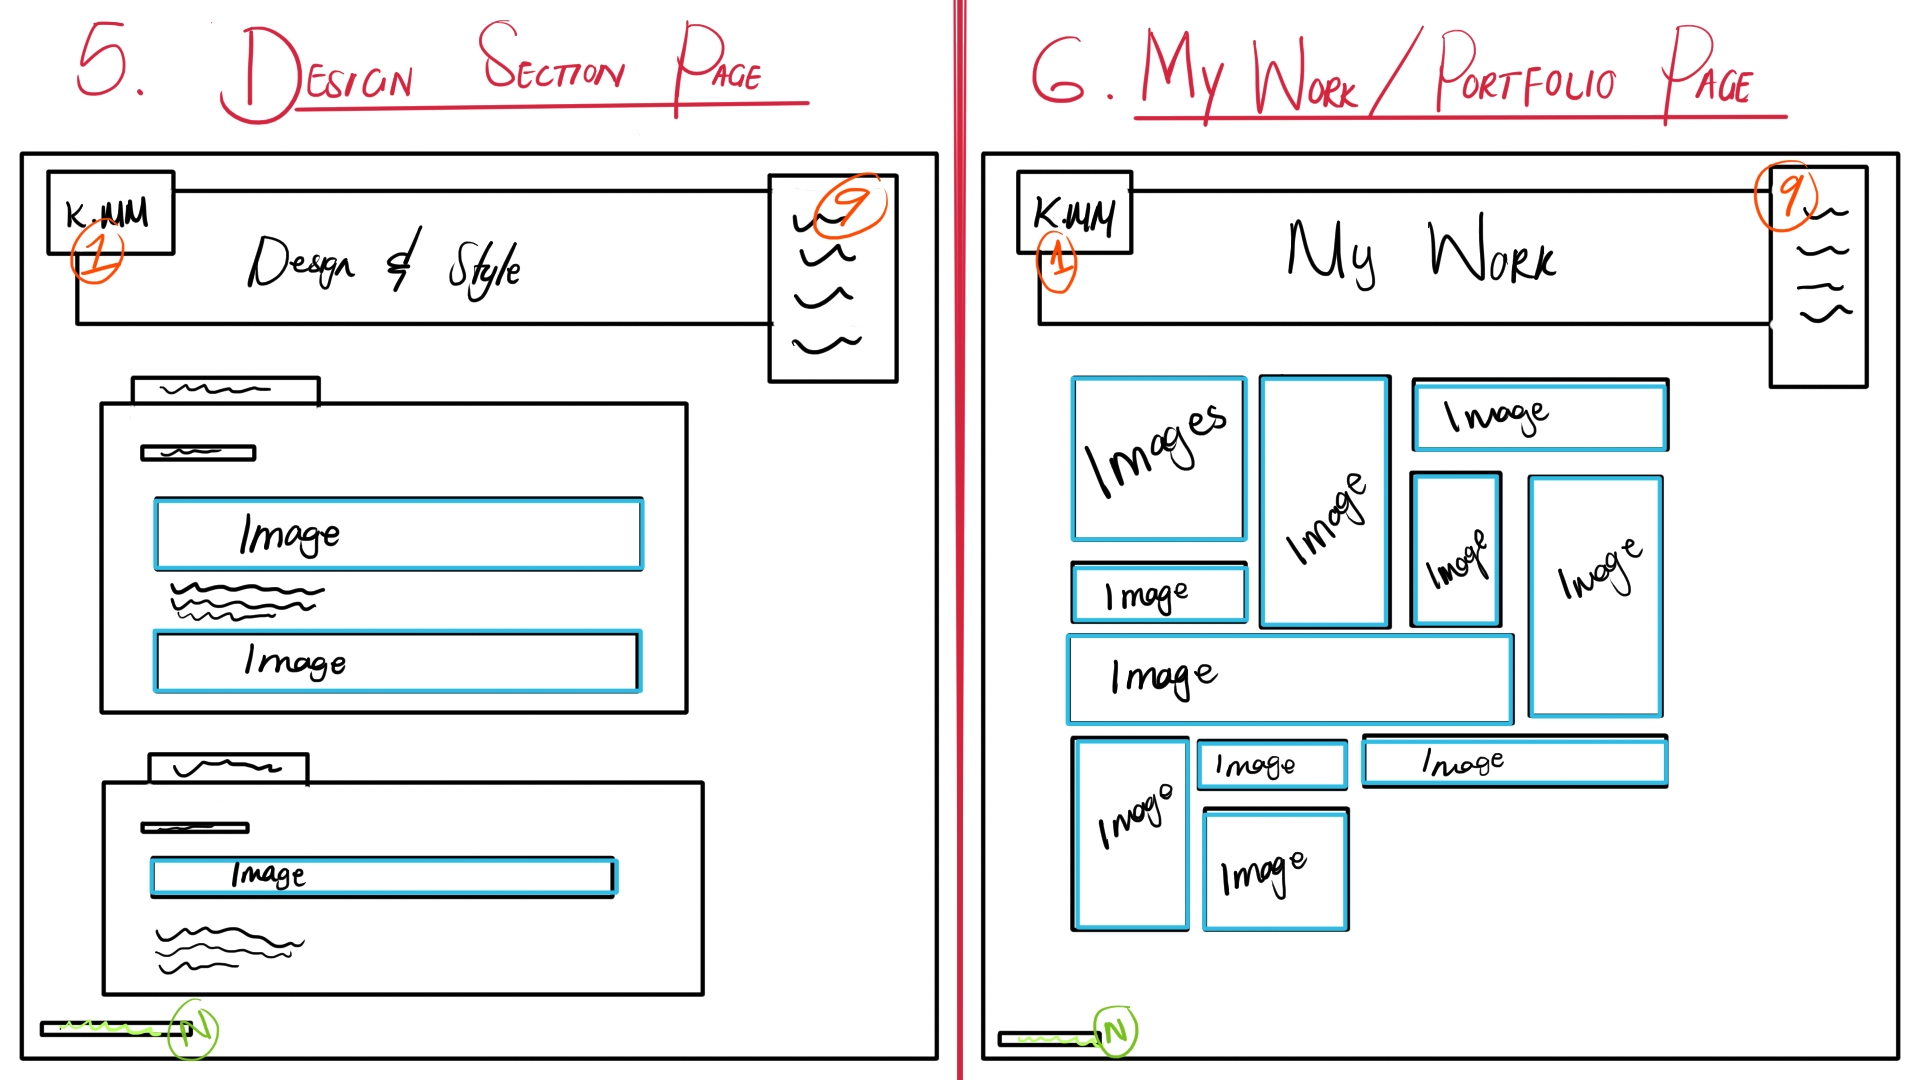 5. DESIGN SECTION PAGE
K.MM
1
9
Design & Style
Image
Image
Image
N
6. My WORK / PORTFOLIO PAGE
K.MM
1
9
My WORK
Images
Image
Image
Image
Image
Image
Image
Image
Image
Image
Image
N